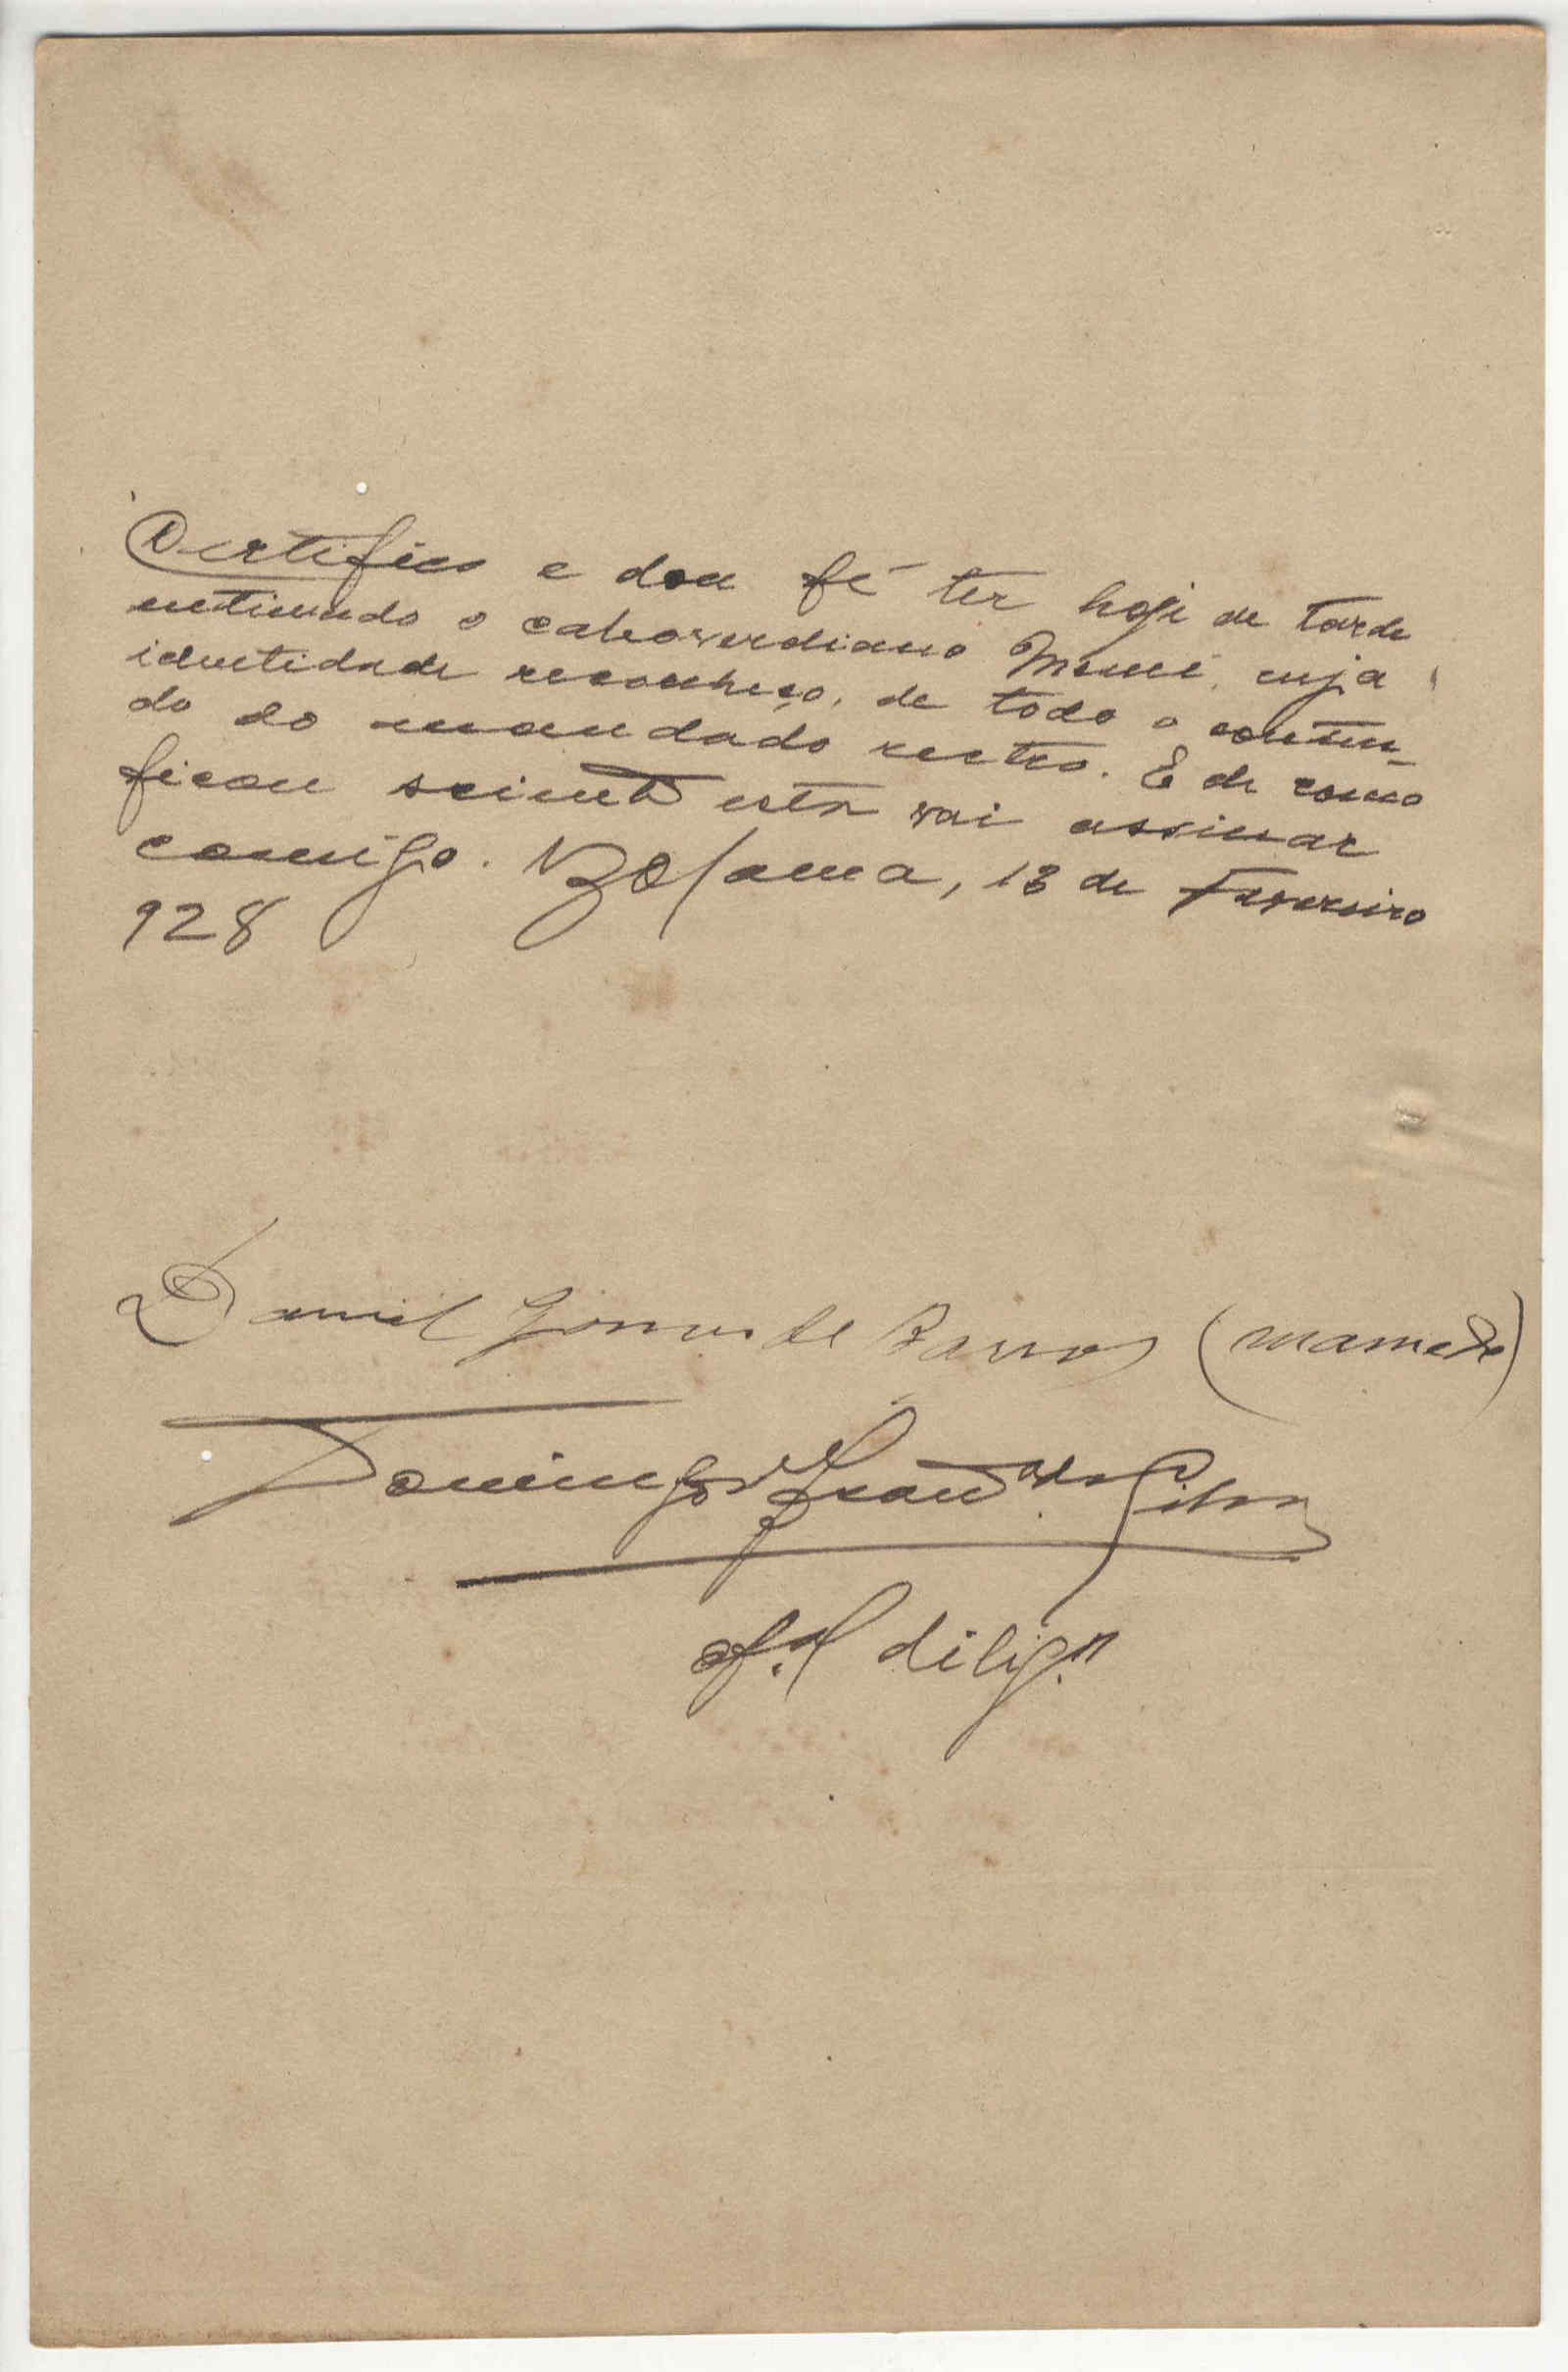 Certifico e dou fé ter hoje de tarde
intimado o caboverdiano Mamé, cuja
identidade reconheço, de todo o conteu-
do do mandado retro. E de como
ficou sciente esta vai assinar
comigo. Bolama, 13 de Fevereiro
928
Daniel Gomes de Barros (mamede)
Domingos da Silva
of.al dilig.